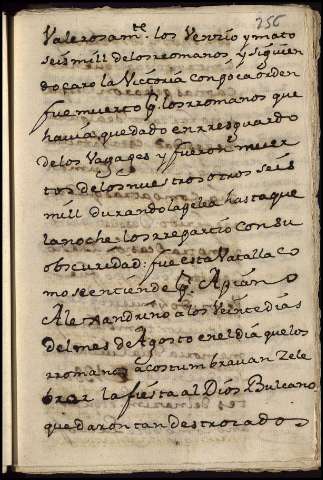 256
Valerosamte. los Venzio y mato
seis mill de los rromanos, y siguien
do Caro la Victoria con poca orden
fue muerto p. los rromanos que
havia quedado en rresguardo
de los Vagages y fueron muer
tos de los nuestros otros seis
mill durando la pelea hasta que
la noche los rrepartio con su
obscuridad: fue esta Vatalla co
mo se entiende p. Apiano
Alexandrino a los Veinte dias
del mes de Agosto en el dia que los
rromanos acostumbravan zele
brar la fiesta al Dios Bulcano
quedaron tan destrozados